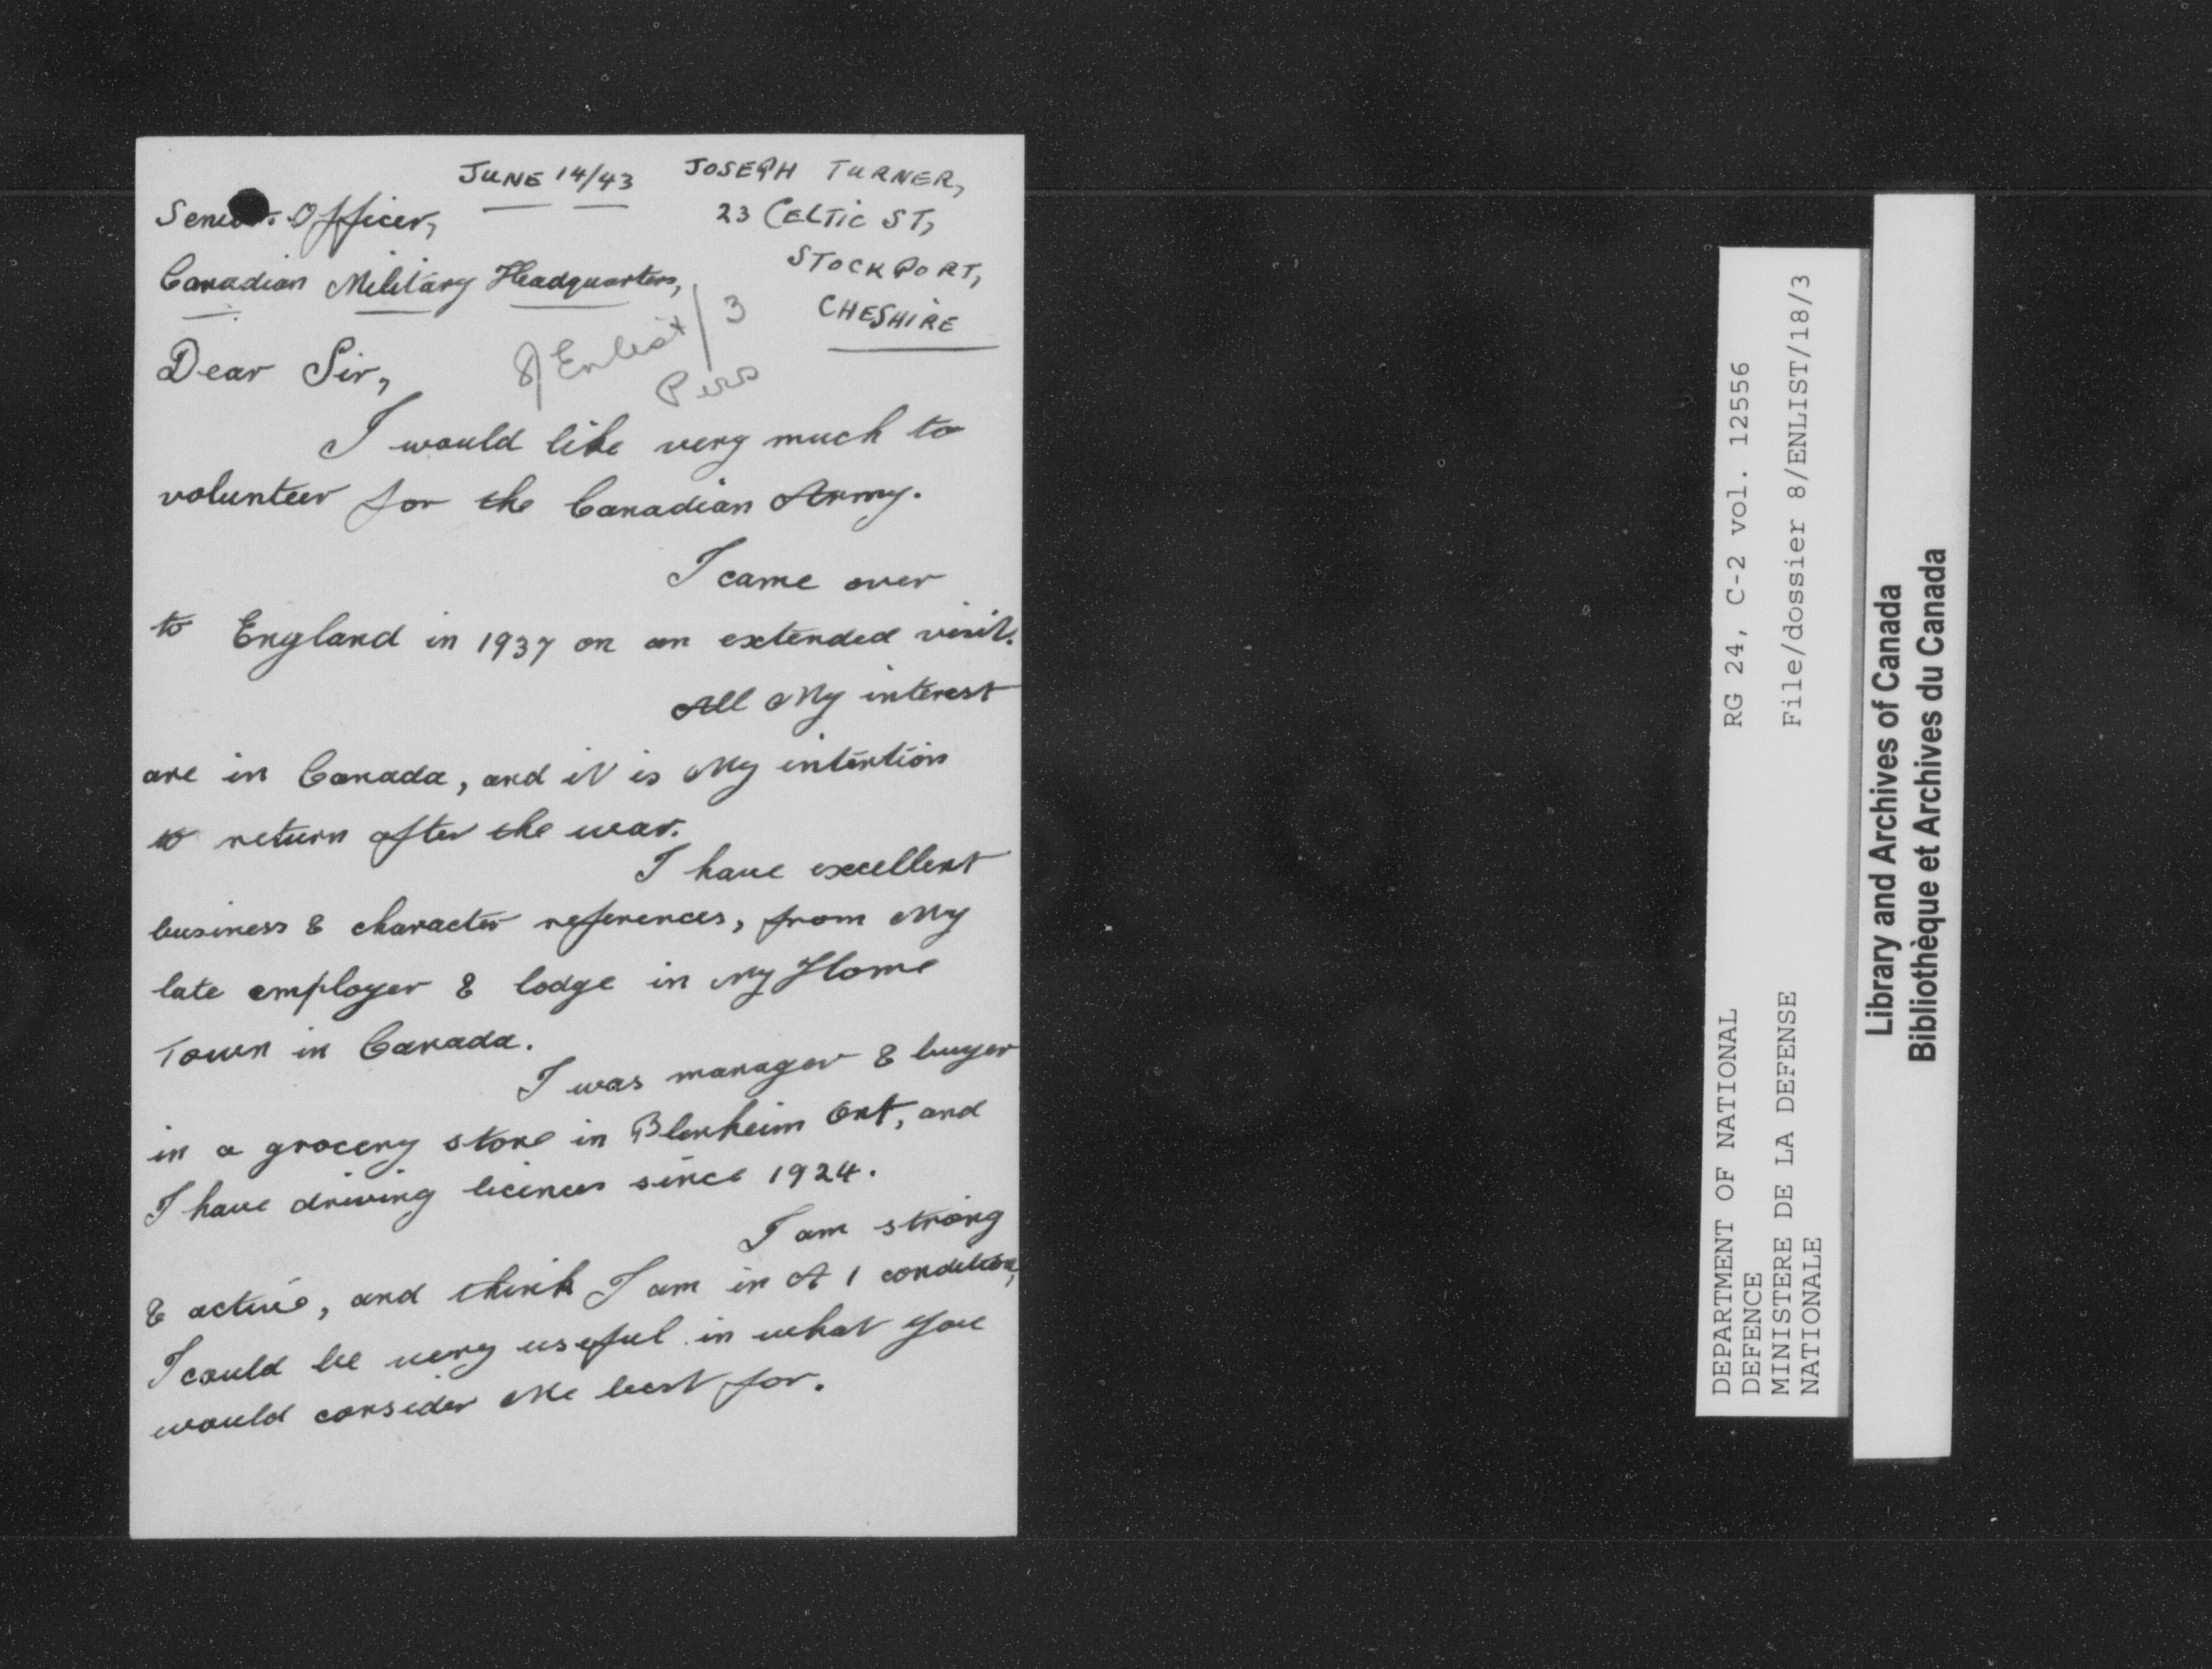 JUNE 14/43
JOSEPH TURNER,
23 CELTIC ST,
STOCKPORT,
CHESHIRE
Senior Officer,
Canadian Military Headquarters,
8/Enlist/3
Pers
Dear Sir,
I would like very much to
volunteer for the Canadian Army.
I came over
to England in 1937 on an extended visit.
All My interest
are in Canada, and it is My intention
to return after the war.
I have excellent
business & character references, from My
late employer & lodge in My Home
Town in Canada.
I was manager & buyer
in a grocery store in Blenheim Ont, and
I have driving licences since 1924.
I am strong
& active, and think I am in A 1 condition,
I could be very useful in what you
would consider Me best for.
DEPARTMENT OF NATIONAL
DEFENCE
MINISTERE DE LA DEFENSE
NATIONALE
RG 24, C-2 vol. 12556
File/dossier 8/ENLIST/18/3
Library and Archives of Canada
Bibliothèque et Archives du Canada